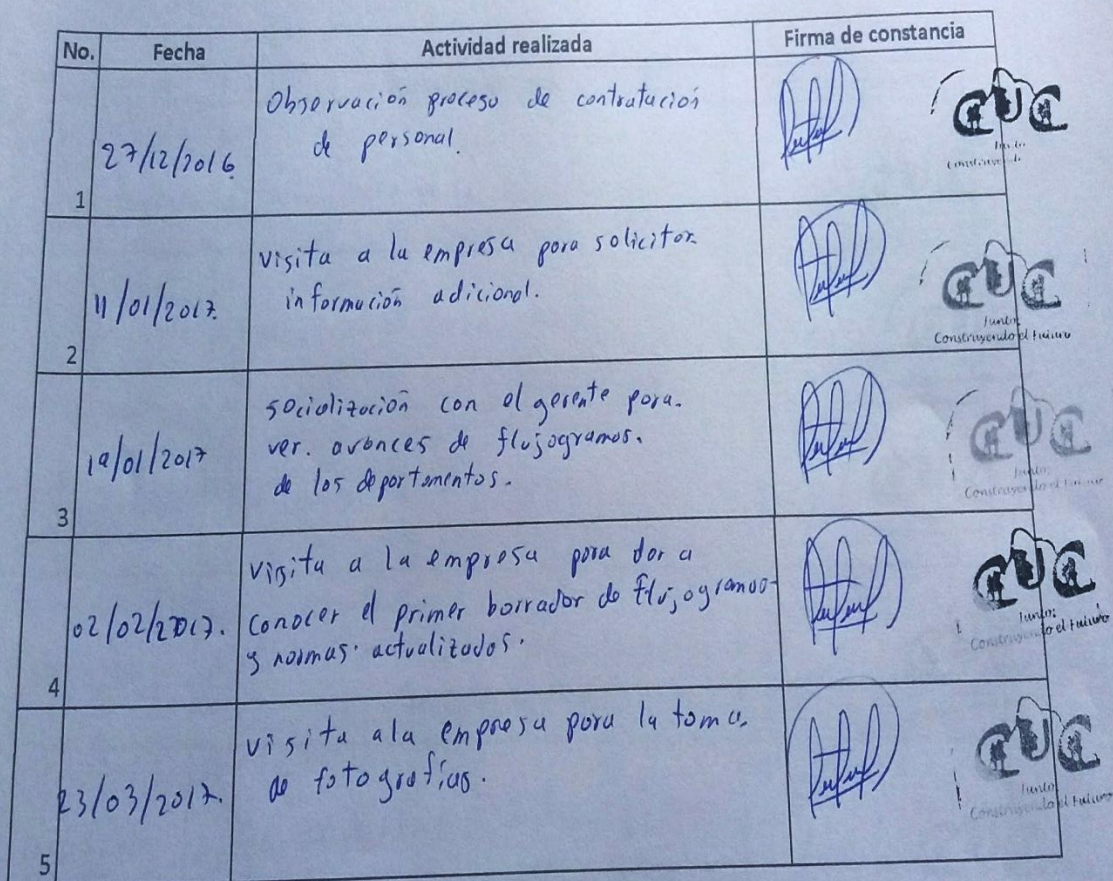 No. Fecha Actividad realizada Firma de constancia
Observación proceso de contratación
de personal.
27/12/2016
1
CUC
Construyendo
visita a la empresa para solicitar
información adicional.
11/01/2017
2
CUC
Juntos
Construyendo el Futuro
socialización con el gerente para
ver. avances de flujogramas.
de los departamentos.
19/01/2017
3
CUC
Juntos
Construyendo el Futuro
visita a la empresa para dar a
conocer el primer borrador de flujogramas
y normas actualizados.
02/02/2017.
4
CUC
Juntos
Construyendo el Futuro
visita ala empresa para la toma
de fotografías.
23/03/2017.
5
CUC
Juntos
Construyendo el Futuro